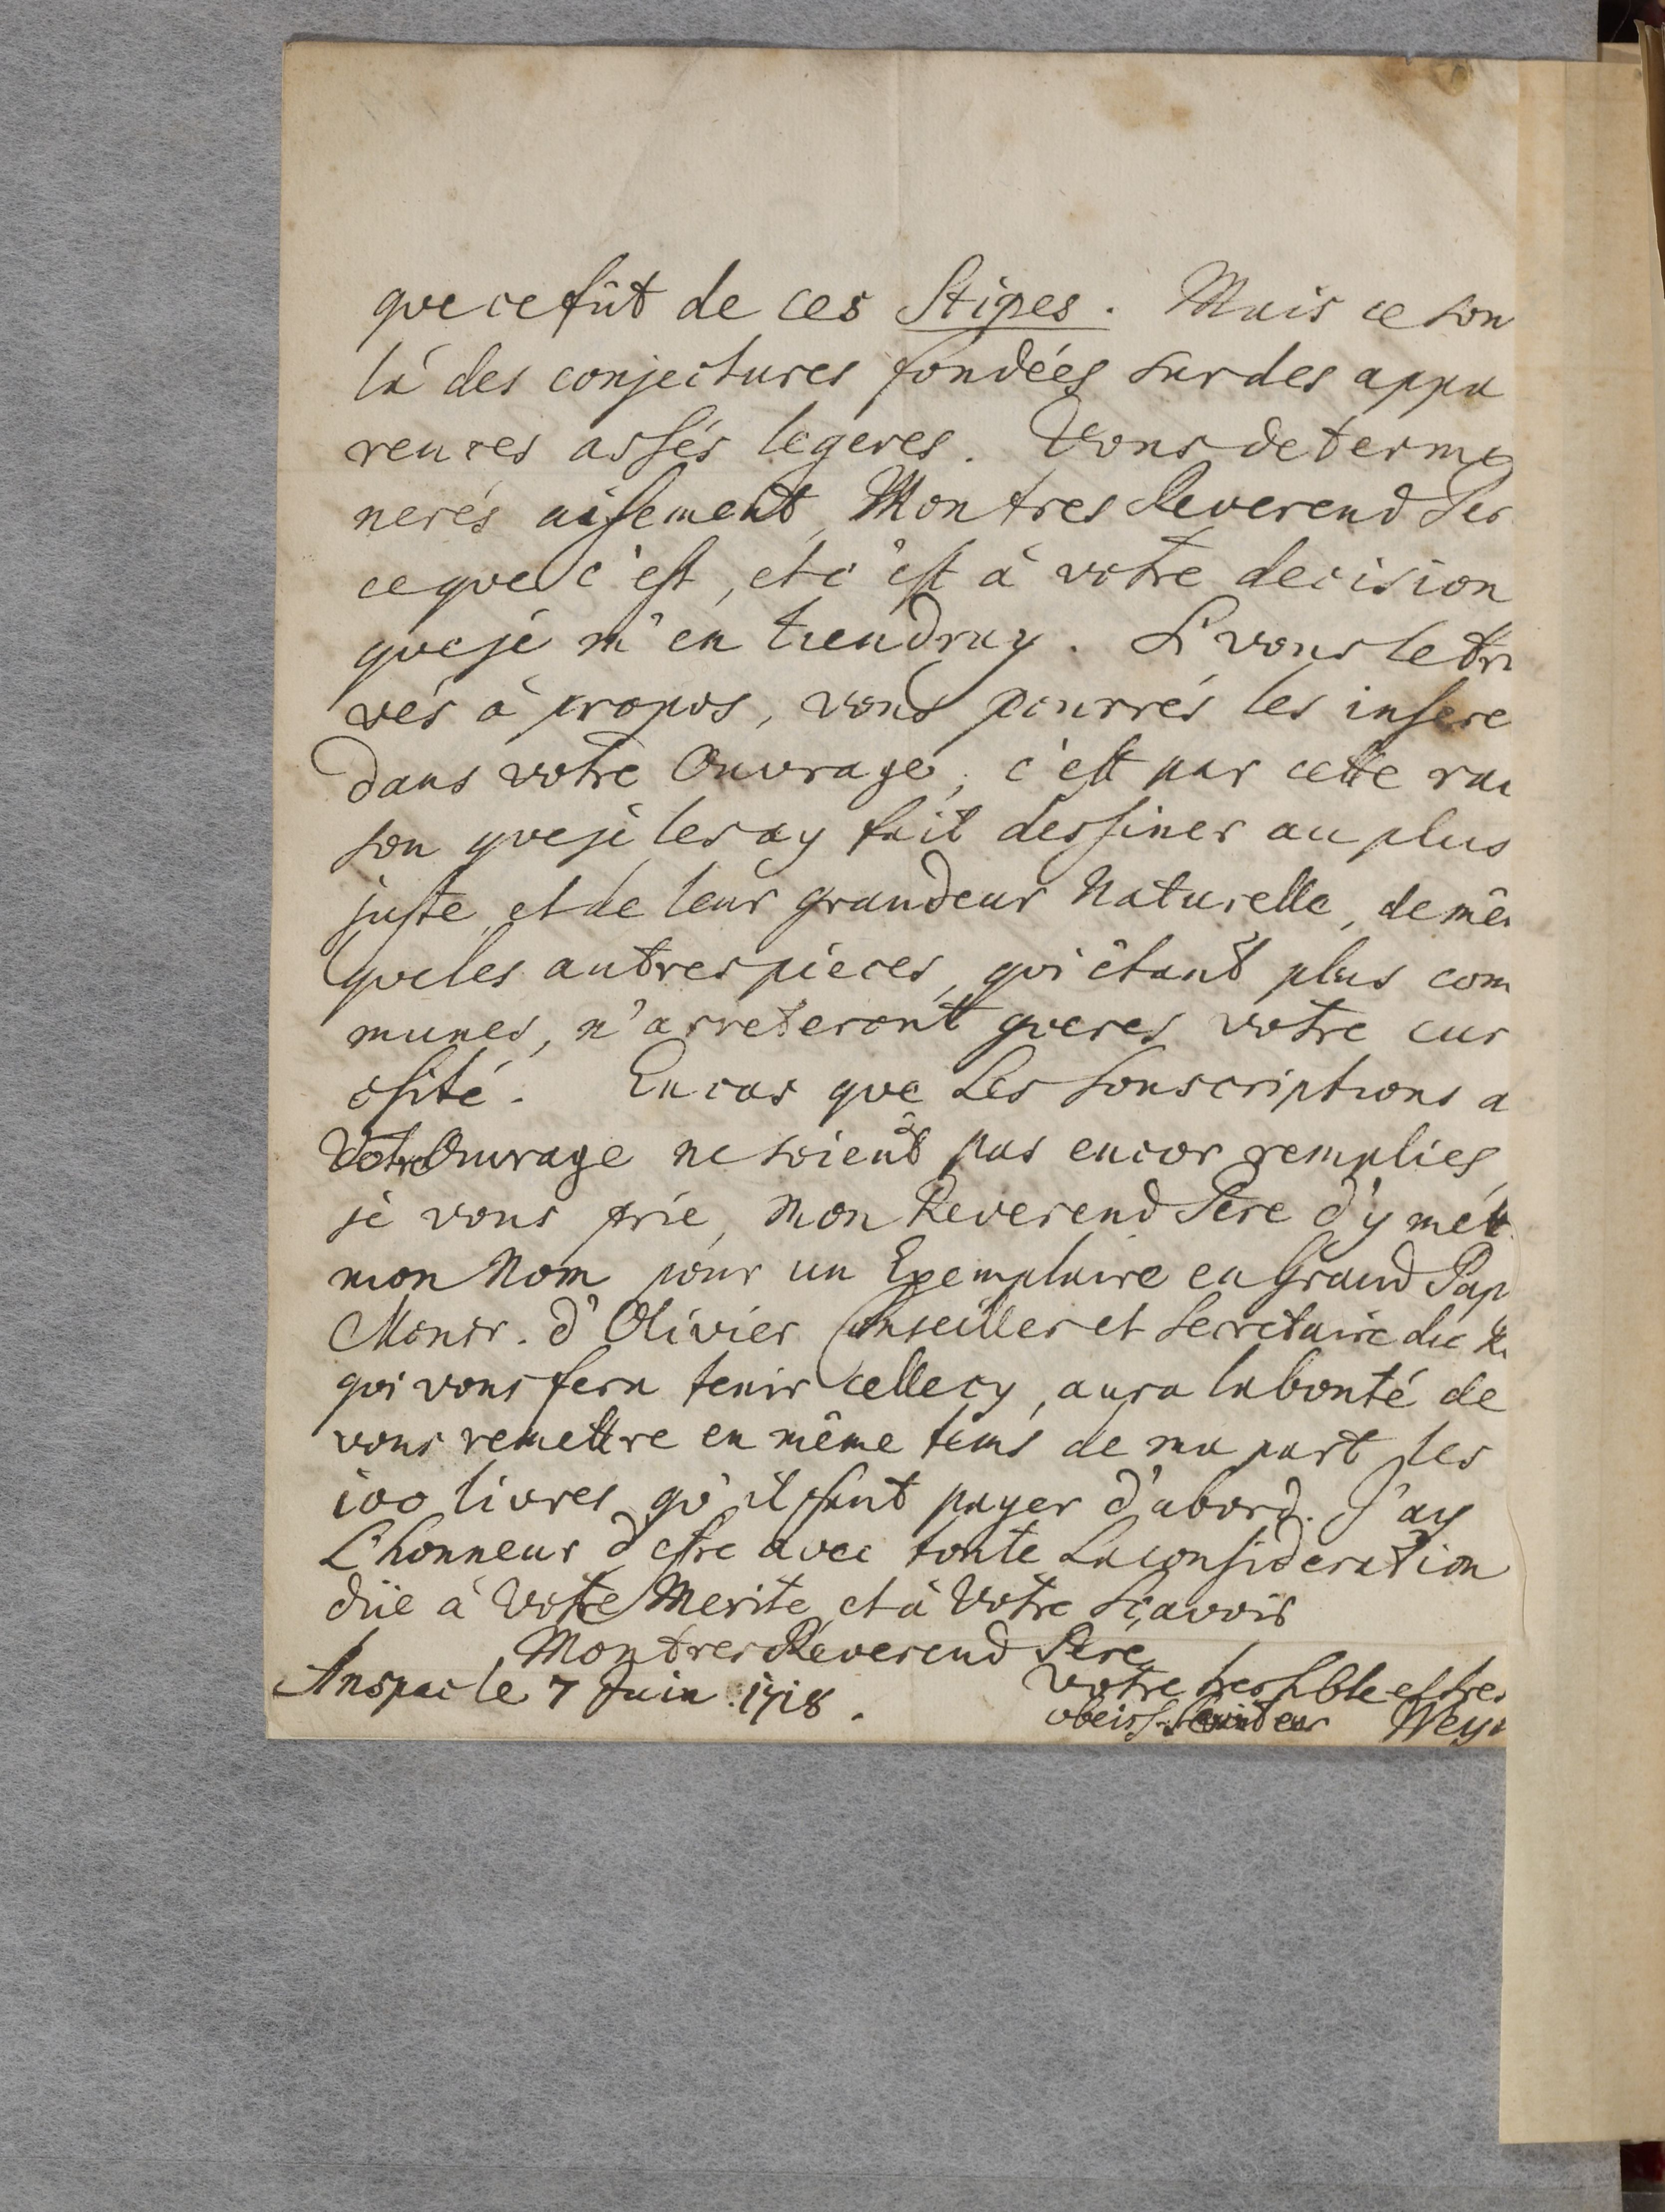 que ce fût de ces Stipes. Mais ce son
là des conjectures fondées sur des appa
rences assés legeres. Vous determi
nerés aisement, Mon tres Reverend Per
ce que c'est, et c'est à votre decision
que je m'en tiendray. Si vous le tro
vés à propos, vous pourrés les insere
dans votre Ouvrage, c'est par cette rai
son que je les ay fait dessiner au plus
juste, et de leur grandeur Naturelle, de mêm
que les autres pieces, qui étant plus com
munes, n'arreteront gueres votre curi
osité. En cas que Les Souscriptions a
Votre Ouvrage ne soient pas encor remplies,
je vous prie, Mon Reverend Pere d'y mett
mon Nom pour un Exemplaire en Grand Pap
Monsr. d'Olivier Conseiller et Secretaire du R
qui vous fera tenir cellecy, aura la bonté de
vous remettre en même tems de ma part les
100 livres qu'il faut payer d'abord. J'ay
L'honneur d'estre avec toute La consideration
düe à Votre Merite et à Votre Sçavoir
Mon tres Reverend Pere
Anspac le 7 Juin 1718.
Votre tres hble et tres
obeiss. serviteur Wey